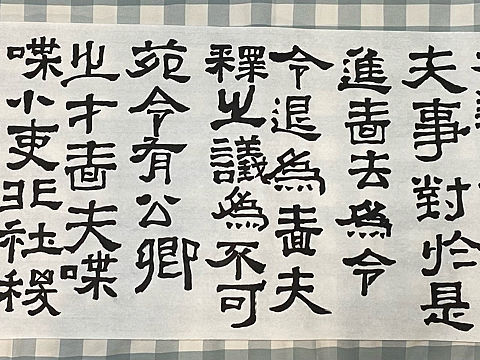 夫事對於是
進嗇去為令
令退為嗇夫
釋之議為不可
苑令有公卿
之才嗇夫喋
喋小吏非社稷